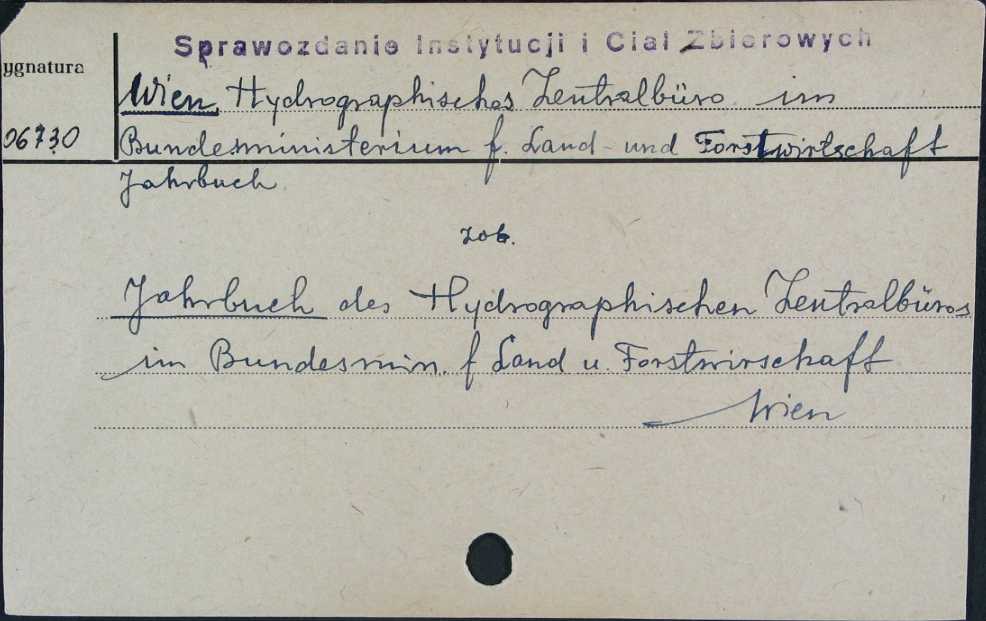 Sprawozdanie Instytucji i Ciał Zbiorowych
ygnatura
Wien, Hydrographisches Zentralbüro im
06730
Bundesministerium f. Land- und Forstwirtschaft
Jahrbuch
zob.
Jahrbuch des Hydrographischen Zentralbüros
im Bundesmin. f Land u. Forstwirschaft
Wien